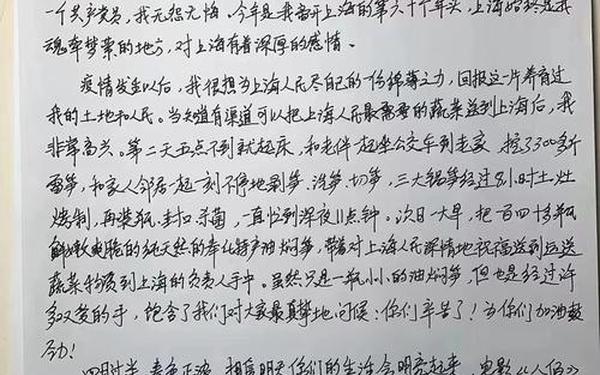 一个共产党员,我无怨无悔。今年是我离开上海的第六十个年头,上海始终是我
魂牵梦萦的地方,对上海有着深厚的感情。
疫情发生以后,我很想为上海人民尽自己的一份绵薄之力,回报这一片养育过
我的土地和人民。当知道有渠道可以把上海人民最需要的蔬菜送到上海后,我
非常高兴。第二天五点不到就起床,和老伴一起坐公交车到老家,挖了300多斤
雷笋,和家人邻居一起一刻不停地剥笋、洗笋、切笋,三大锅笋经过8小时土灶
烧制,再装瓶、封口、杀菌,一直忙到深夜11点钟。次日一大早,把一百四十多瓶
鲜嫩爽脆的纯天然的奉化特产油焖笋,带着对上海人民深情地祝福送到运送
蔬菜物资到上海的负责人手中。虽然只是一瓶小小的油焖笋,但也是经过许
多双爱的手,饱含了我们对大家最真挚地问候:你们辛苦了!为你们加油鼓
劲!
四月过半,春色正浓,相信明天你们的生活会明亮起来,电影《人